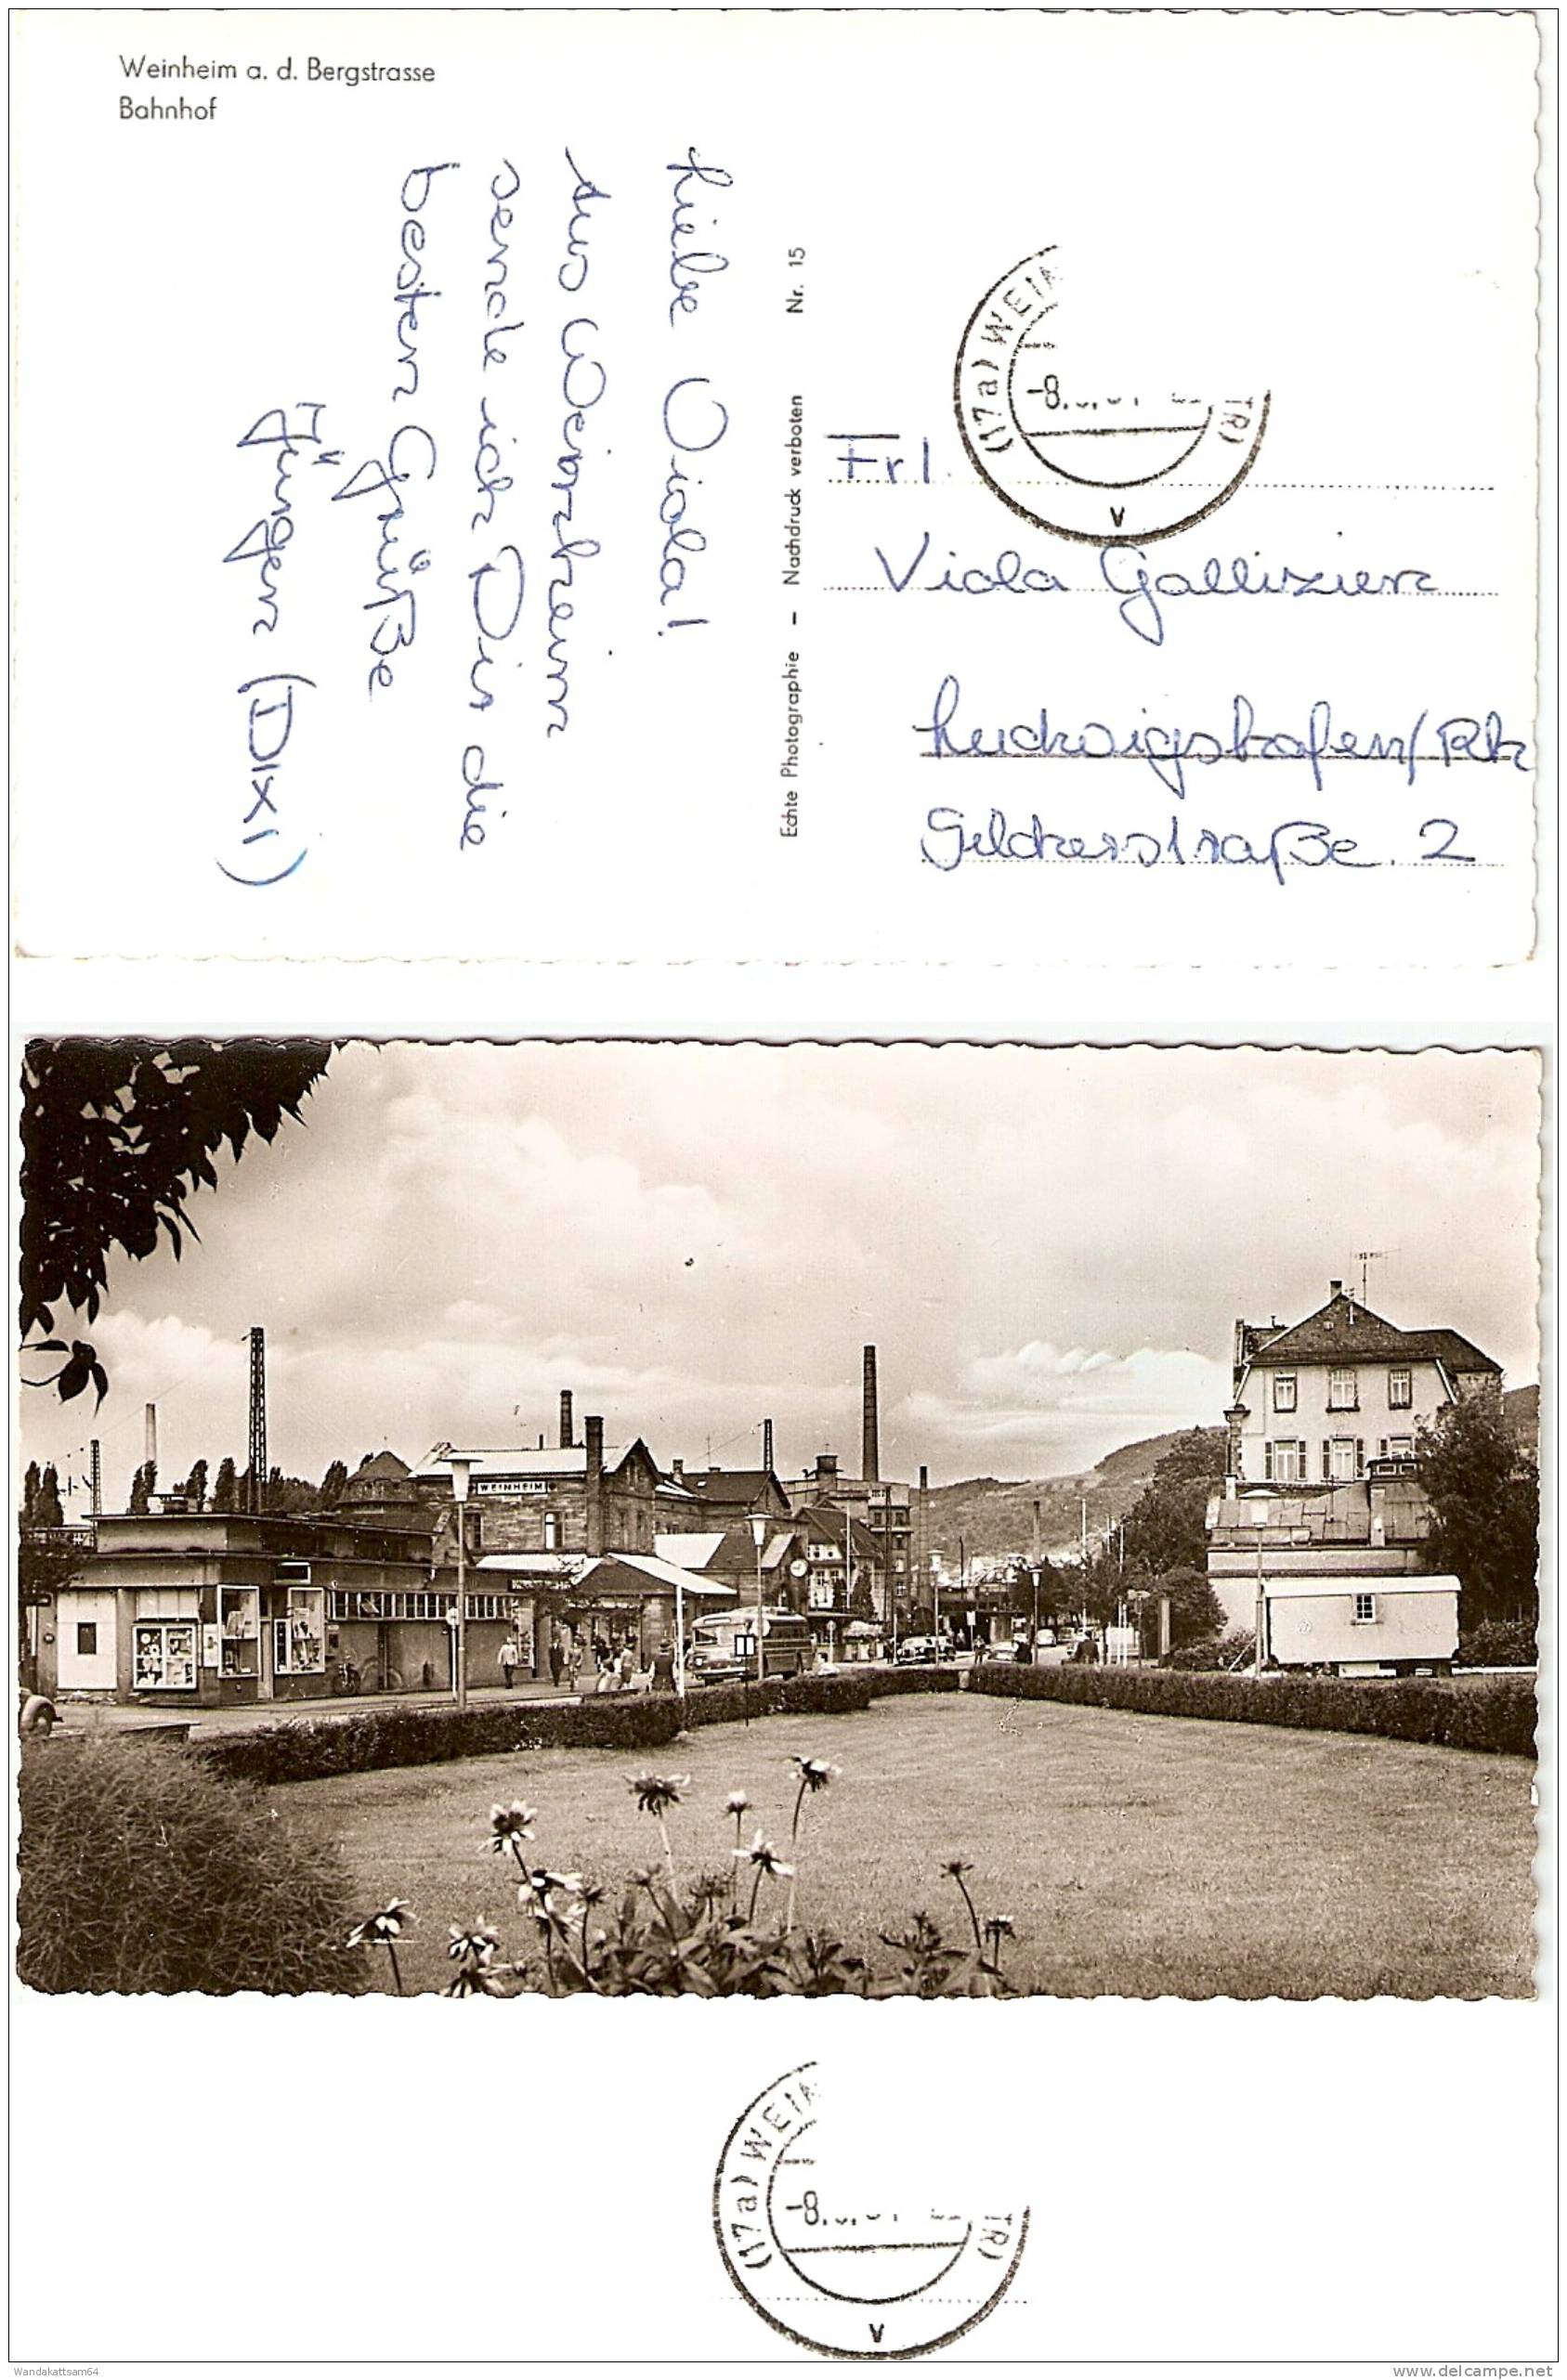 Weinheim a. d. Bergstrasse
Bahnhof
Liebe Viola!
Aus Weinheim
sende ich Dir die
besten Grüße
Jürgen (DIXI)
Echte Photographie – Nachdruck verboten Nr. 15
(17a) WEIN
TR)
-8.
v
Frl.
Viola Gallizien
Ludwigshafen/Rh
2
WEINHEIM
(17a) WEIN
TR)
-8.
v
Wandakattsam64
www.delcampe.net